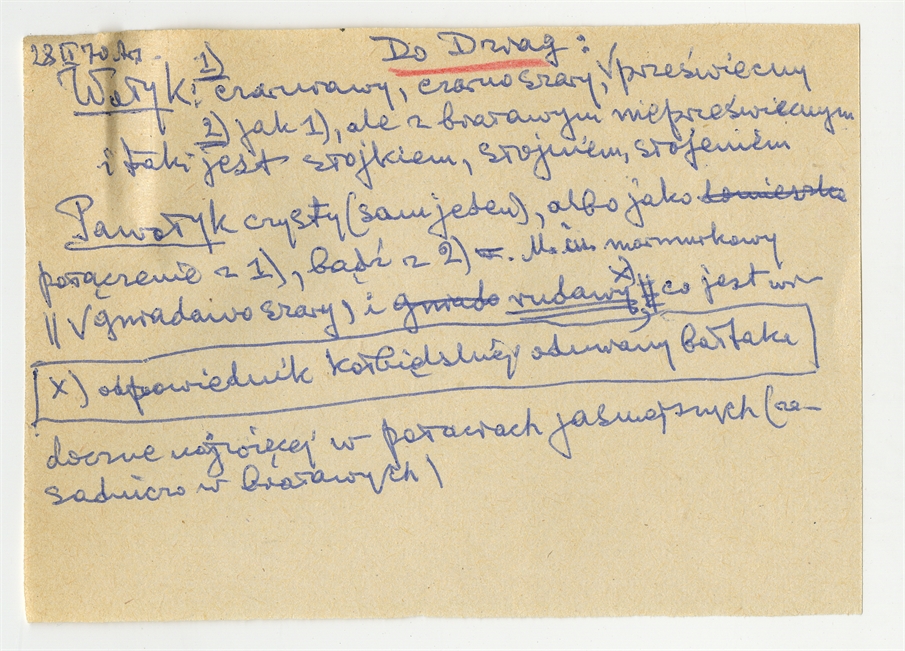 28 II 70
Do Drwag:
Wołyk: 1) czarniawy, czarnoszary, przeświecny
2) jak 1), ale z białawym nieprzeświecnym
i taki jest słojkiem, słojniem, słojeniem
Pawołyk czysty (sam jeden), albo jako domieszka
połączenie z 1), bądź z 2). M. in. marmurkowy
|| V gniadawoszary, i gniado rudawy x) || co jest wi-
x) odpowiednik odmiany bałtaka
doczne najwięcej w połaciach jaśniejszych (za-
sadniczo w białawych)